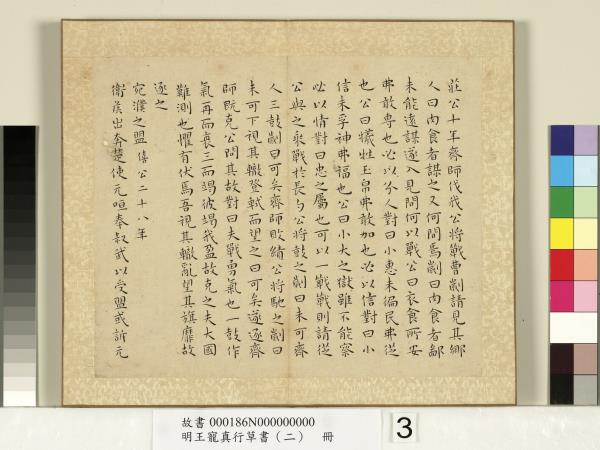 莊公十年齊師伐我公將戰曹劌請見其鄉
人曰肉食者謀之又何間焉劌曰肉食者鄙
未能遠謀遂入見問何以戰公曰衣食所安
弗敢專也必以分人對曰小惠未徧民弗從
也公曰犧牲玉帛弗敢加也必以信對曰小
信未孚神弗福也公曰小大之獄雖不能察
必以情對曰忠之屬也可以一戰戰則請從
公與之乘戰于長勺公將鼓之劌曰未可齊
人三鼓劌曰可矣齊師敗績公將馳之劌曰
未可下視其轍登軾而望之曰可矣遂逐齊
師既克公問其故對曰夫戰勇氣也一鼓作
氣再而衰三而竭彼竭我盈故克之夫大國
難測也懼有伏焉吾視其轍亂望其旗靡故
逐之
宛濮之盟 僖公二十八年
衛侯出奔楚使元咺奉叔武以受盟或訴元
故書 000186N000000000
明王寵真行草書（二） 冊
3